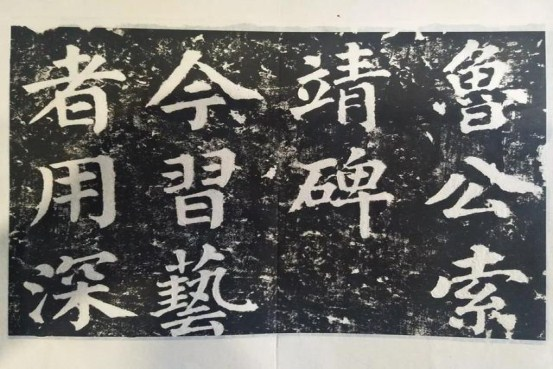 魯公索
靖碑
今習藝
者用深